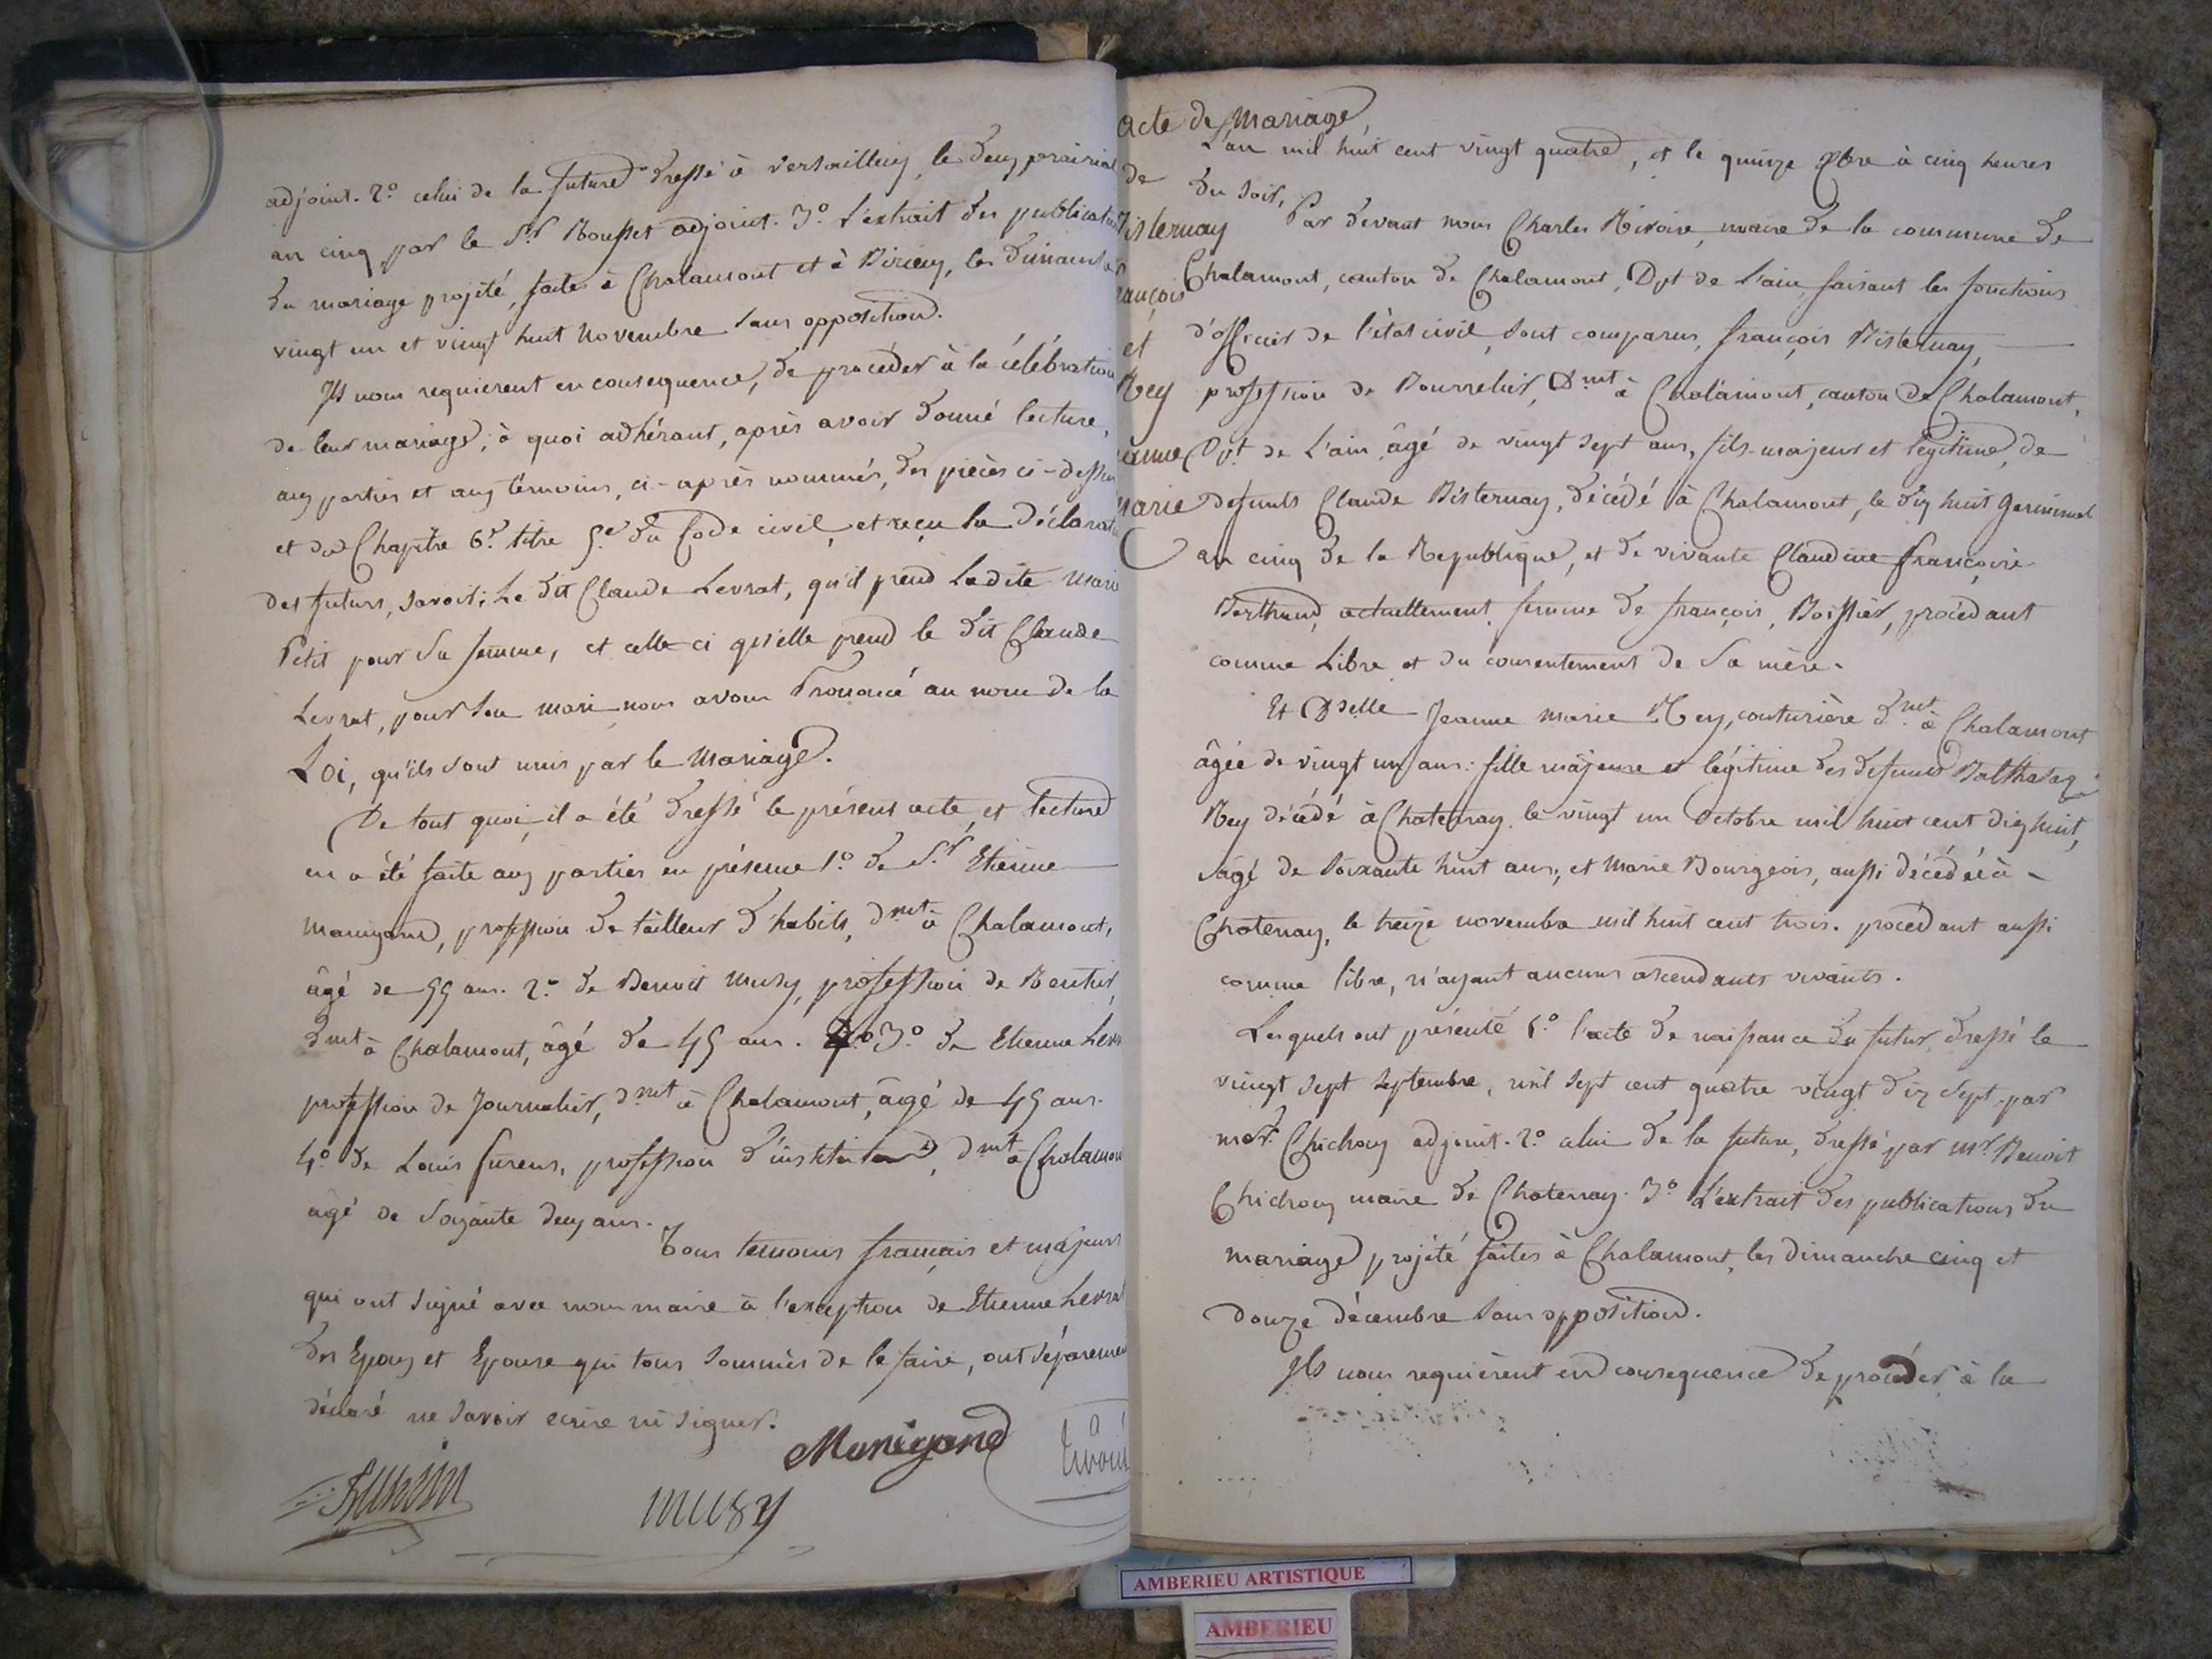 adjoint. 2.o celui de la future dressé à versailleux, le deux prairial
an cinq par le S.r Rousset adjoint. 3.o L'extrait des publicatio
du mariage projeté, faites à Chalamont et à Birieux, les dimanches
vingt un et vingt huit Novembre sans opposition.
Ils nous requierent en consequence, de procéder à la célébration
de leur mariage; à quoi adhérant, après avoir donné lecture,
aux parties et aux témoins, ci-après nommés, des pièces ci-dessus
et du Chapitre 6.e titre 5.e du Code civil, et reçu la déclarat
des futurs, savoir; Le dit Claude Levrat, qu'il prend Ladite Marie
Petit pour sa femme, et celle-ci qu'elle prend le dit Claude
Levrat, pour son mari nous avons Prononcé au nom de la
Loi, qu'ils sont unis par le Mariage.
De tout quoi, il a été dressé le présent acte, et lecture
en a été faite aux parties en présence 1.o de S.r Etienne
Manigand, profession de tailleur d'habits, dmt à Chalamont,
âgé de 55 ans. 2.o de Benoit Musy, profession de Rentier,
dmt à Chalamont, âgé de 45 ans. 3.o de Etienne Levr
profession de Journalier, dmt à Chalamont, âgé de 45 ans.
4.o de Louis profession d'instituteur, dmt à Chalamont
âgé de Soixante deux ans.
Tous temoins français et majeurs
qui ont signé avec nous maire à l'exception de Etienne Levrat
des Epoux et Epouse qui tous sommés de le faire, ont séparement
déclaré ne savoir ecrire ni signer.
Manigand
musy
Acte de Mariage
de
Bisternay
François
et
Rey
Jeanne
Marie
L'an mil huit cent vingt quatre, et le quinze Xbre à cinq heures
du soir, Par devant nous Charles Rivoire, maire de la commune de
Chalamont, canton de Chalamont, Dpt de L'ain, faisant les fonctions
d'officier de l'état civil, sont comparus, françois Bisternay,
profession de Bourrelier, Dmt à Chalamont, canton de Chalamont,
Dpt de L'ain, âgé de vingt sept ans, fils majeur et legitime, de
defunts Claude Bisternay, décédé à Chalamont, le dix huit germinal
an cinq de la Republique, et de vivante Claudine françoise
Berthand, actuellement femme de françois Boissier, procédant
comme Libre et du consentement de sa mère.
Et Dselle Jeanne marie Rey, couturière dmt à Chalamont
âgée de vingt un ans: fille majeure et légitime des defunts Balthasaz
Rey décédé à Chatenay le vingt un Octobre mil huit cent dix huit,
âgé de soixante huit ans, et Marie Bourgeois, aussi décédée à
Chatenay, le treize novembre mil huit cent trois. procédant aussi
comme libre, n'ayant aucuns ascendants vivants.
Lesquels ont présenté 1.o l'acte de naissance du futur dressé le
vingt sept septembre, mil sept cent quatre vingt dix sept par
Chichoux adjoint. 2.o celui de la future, dressé par Mr Benoit
Chichoux maire de Chatenay. 3.o L'extrait des publications du
mariage projeté faites à Chalamont, les dimanche cinq et
douze décembre sans opposition.
Ils nous requièrent en consequence de procéder à la
AMBERIEU ARTISTIQUE
AMBERIEU